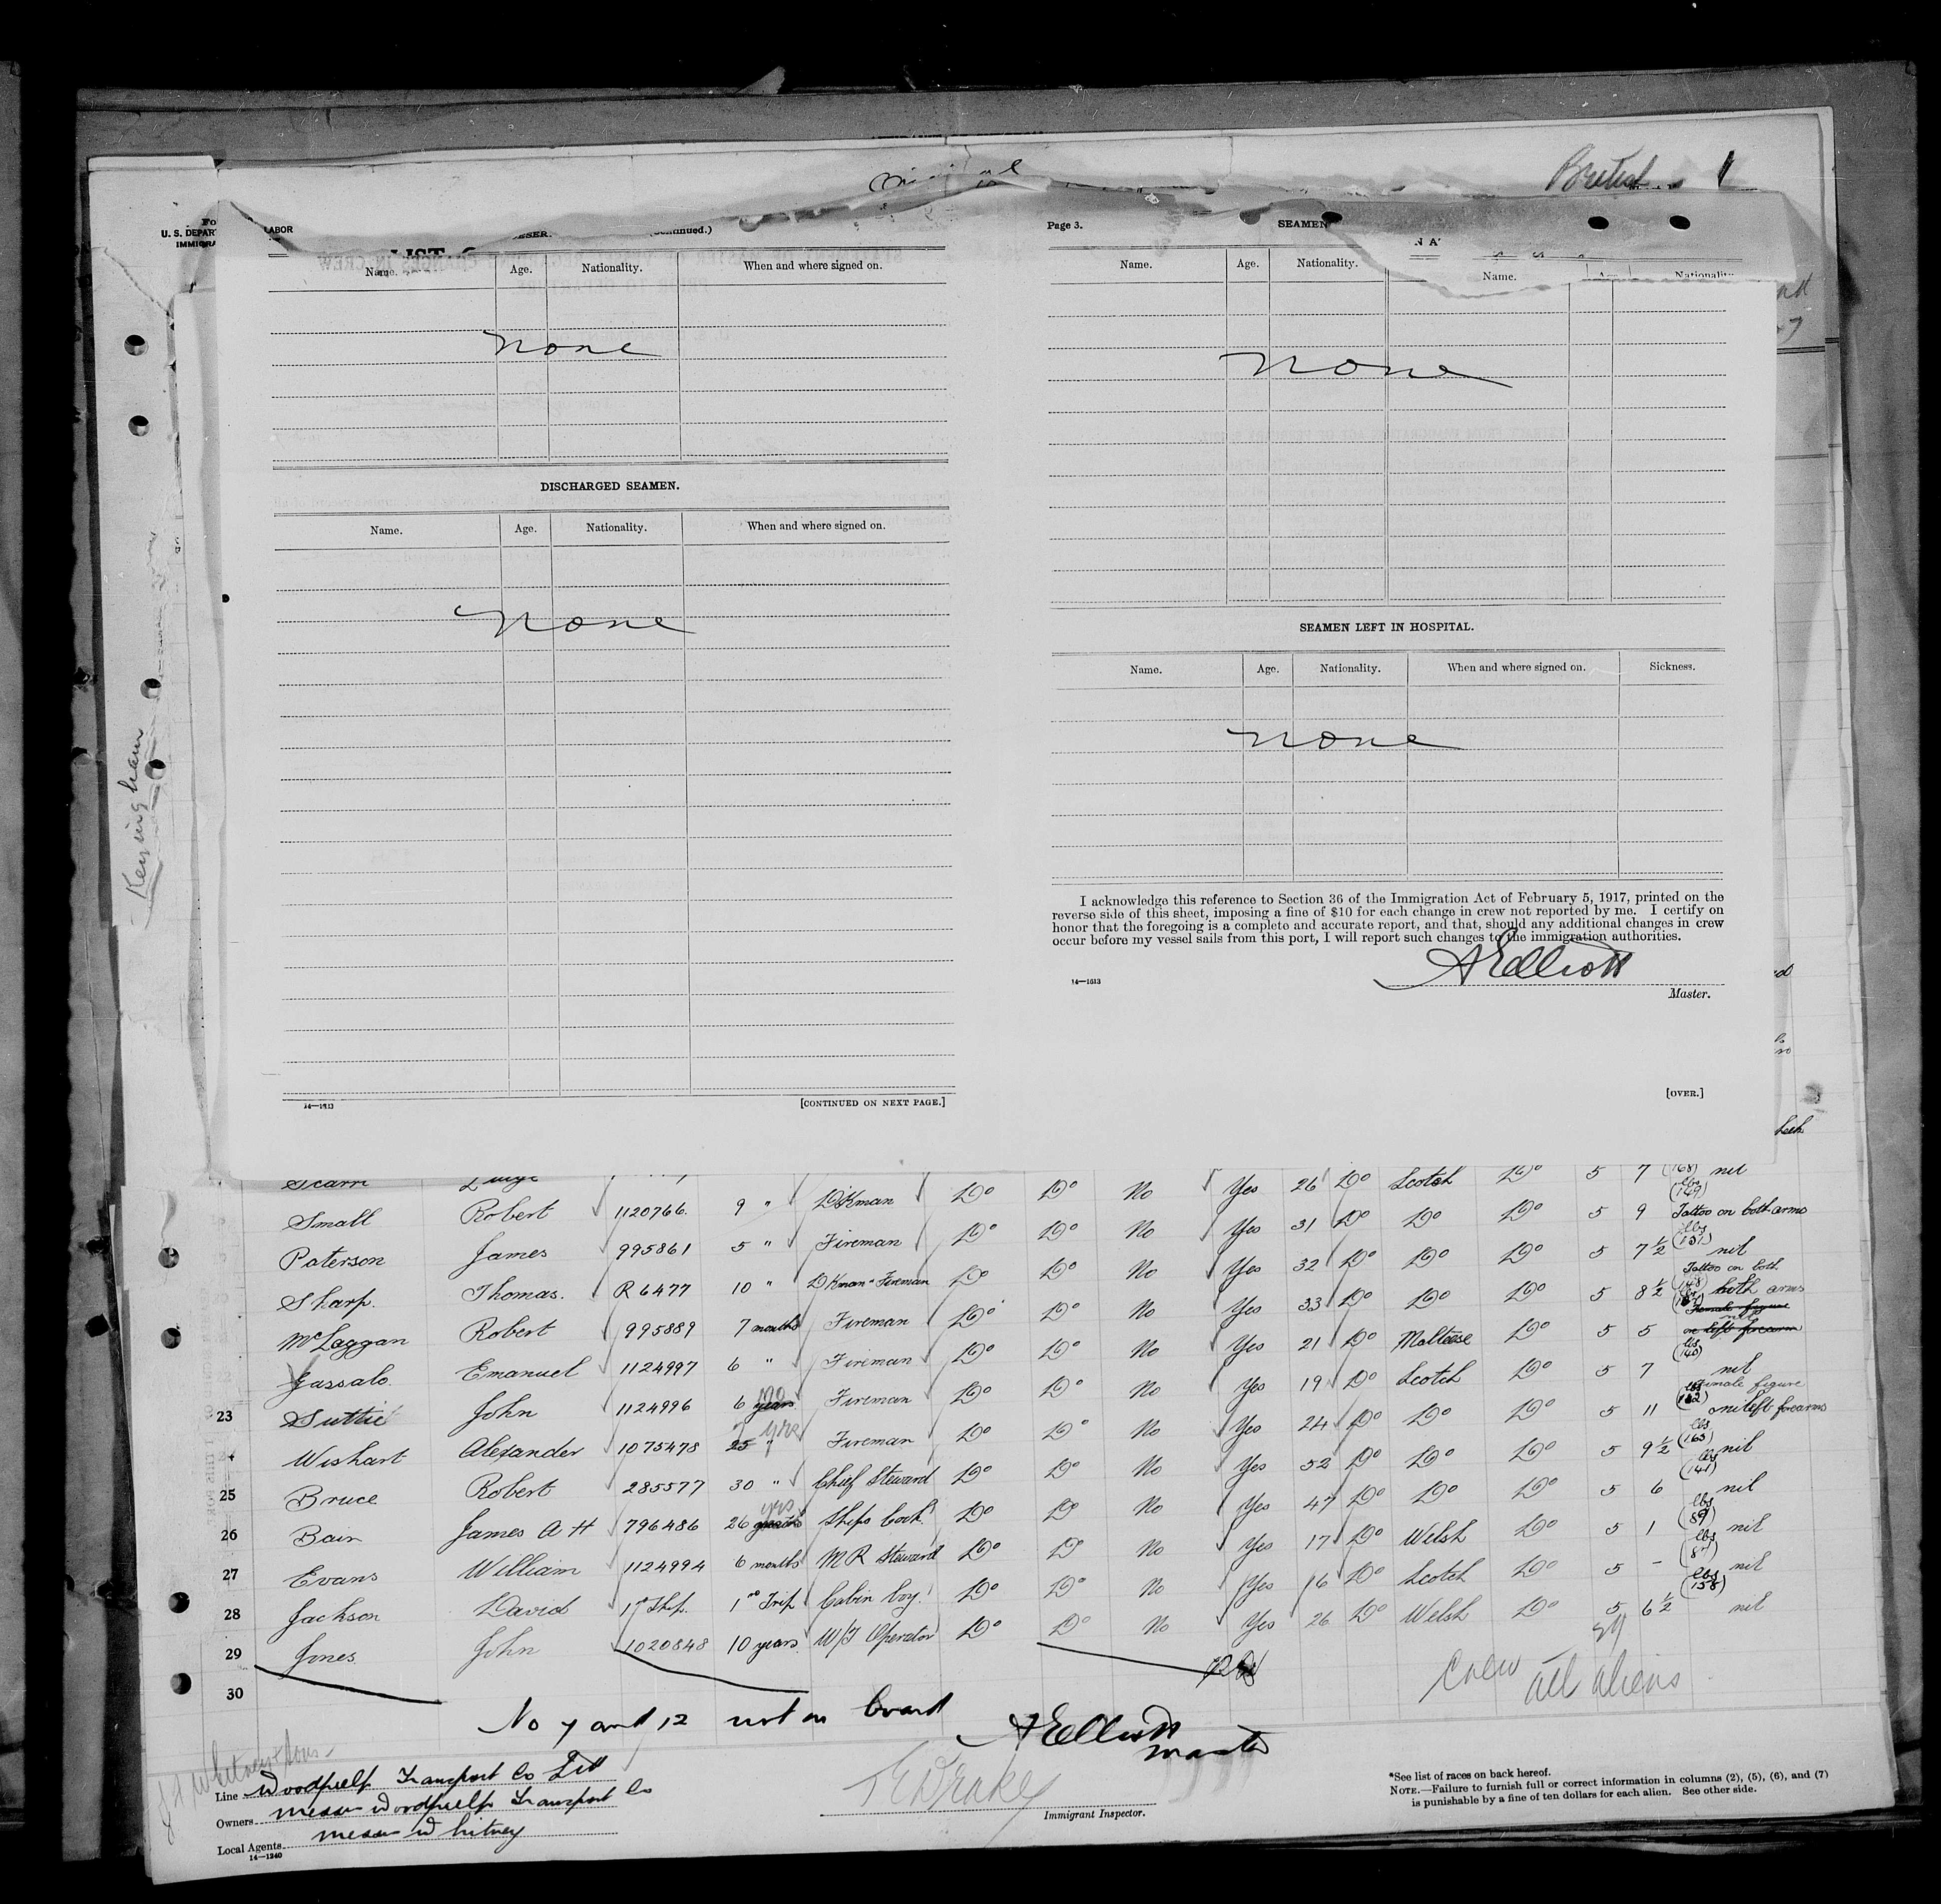 British 1
U. S. DEPAR LABOR
IMMIGRA
LIST
(Continued.)
Name. Age. Nationality. When and where signed on.
None
DISCHARGED SEAMEN.
Name. Age. Nationality. When and where signed on.
None
14—1613 [CONTINUED ON NEXT PAGE.]
Page 3. SEAMEN
Name. Age. Nationality. Name. Nationality
None
SEAMEN LEFT IN HOSPITAL.
Name. Age. Nationality. When and where signed on. Sickness.
None
I acknowledge this reference to Section 36 of the Immigration Act of February 5, 1917, printed on the
reverse side of this sheet, imposing a fine of $10 for each change in crew not reported by me. I certify on
honor that the foregoing is a complete and accurate report, and that, should any additional changes in crew
occur before my vessel sails from this port, I will report such changes to the immigration authorities.
A Elliott
14—1613 Master.
[OVER.]
Keyingham
Small Robert 1120766 9 " D'Kman Do Do No Yes 26 Do Scotch Do 5 7 (168) nil
Paterson James 995861 5 " Fireman Do Do No Yes 31 Do Do Do 5 9 lbs (149) Tattoo on both arms
Sharp. Thomas. R 6477 10 " D'Kman & Fireman Do Do No Yes 32 Do Do Do 5 7½ lbs (151) nil
McLaggan Robert 995889 7 months Fireman Do Do No Yes 33 Do Do Do 5 8½ (148) Tattoo on both both arms
Gassalo. Emanuel 1124997 6 " Fireman Do Do No Yes 21 Do Maltese Do 5 5 Female figure on left forearm nil
23 Suttie John 1124996 6 years mo Fireman Do Do No Yes 19 Do Scotch Do 5 7 lbs (140) nil
Wishart Alexander 1075478 25 " 7 yrs Fireman Do Do No Yes 24 Do Do Do 5 11 lbs (162) Female figure left forearms
25 Bruce Robert 285577 30 " Chief Steward Do Do No Yes 52 Do Do Do 5 9½ lbs (163) nil
26 Bain James A H 796486 26 yrs Ships Cook Do Do No Yes 47 Do Do Do 5 6 lbs (141) nil
27 Evans William 1124994 6 months M R Steward Do Do No Yes 17 Do Welsh Do 5 1 lbs (89) nil
28 Jackson David 1st Ship. 1st Trip Cabin boy Do Do No Yes 16 Do Scotch Do 5 - lbs nil
29 Jones John 1020848 10 years W/T Operator Do Do No Yes 26 Do Welsh Do 5 6½ lbs (158) nil
30
Crew all aliens
No 7 and 12 not on board A Elliott
Master
J A Whitney & Sons
Line Woodpulp Transport Co Ltd
Owners Messrs Woodpulp Transport Co
Local Agents Messrs Whitney
14—1240
T E Drakey
Immigrant Inspector.
*See list of races on back hereof.
NOTE.—Failure to furnish full or correct information in columns (2), (5), (6), and (7)
is punishable by a fine of ten dollars for each alien. See other side.